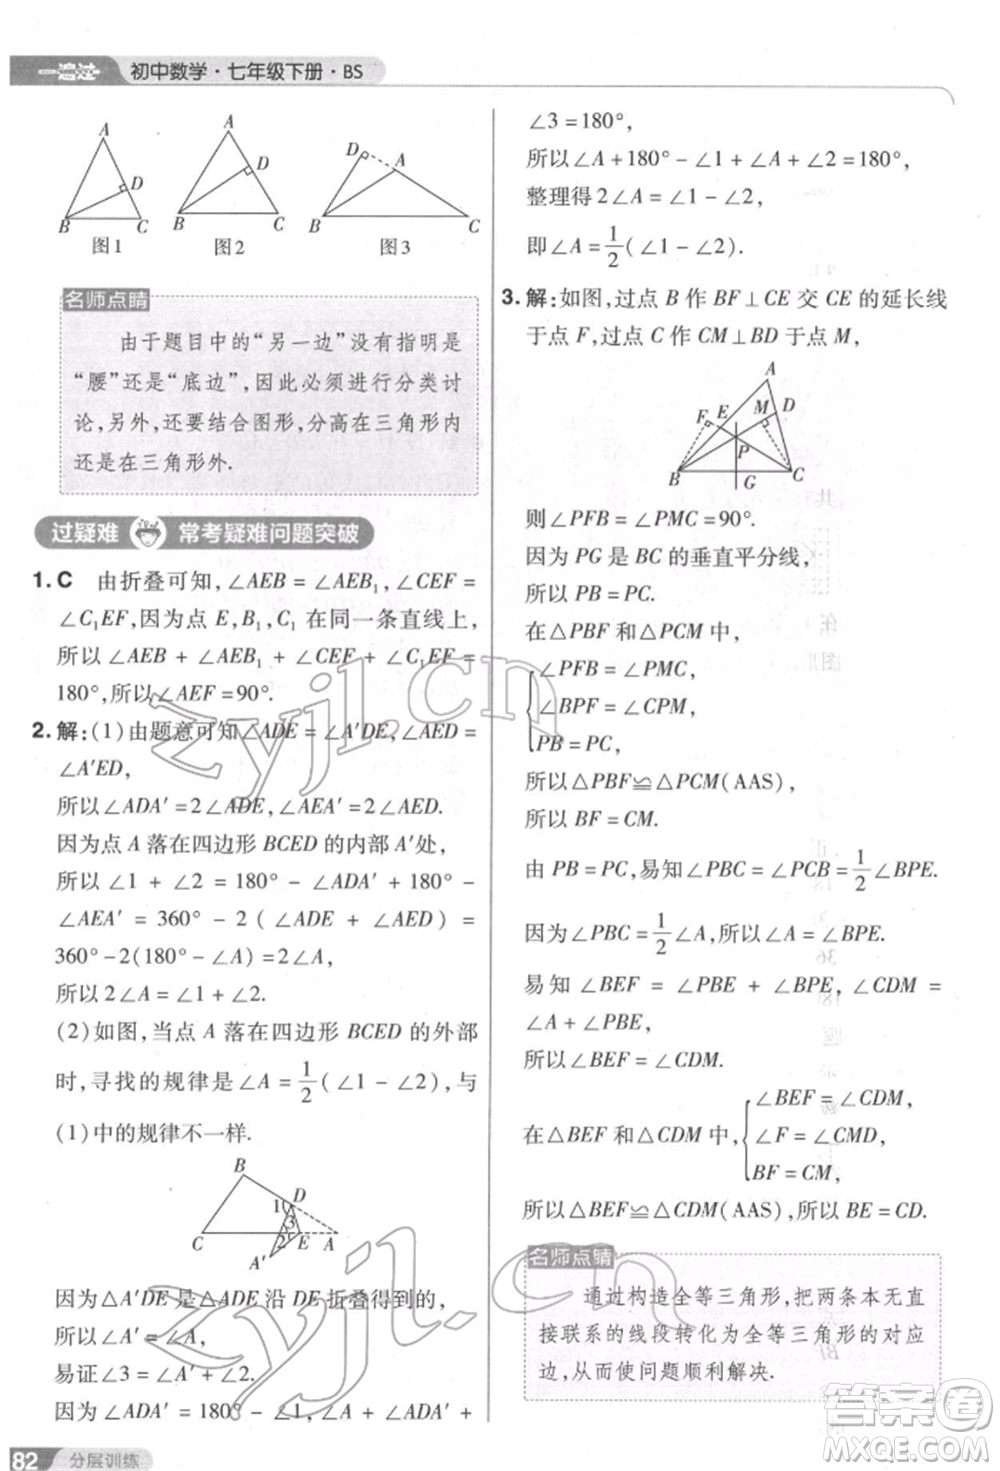 一遍过 初中数学·七年级下册·BS
A
D
B C
图1
A
D
B C
图2
D A
B C
图3
名师点睛
由于题目中的“另一边”没有指明是
“腰”还是“底边”,因此必须进行分类讨
论,另外,还要结合图形,分高在三角形内
还是在三角形外.
过疑难 常考疑难问题突破
1. C 由折叠可知,∠AEB = ∠AEB₁,∠CEF =
∠C₁EF,因为点 E,B₁,C₁ 在同一条直线上,
所以 ∠AEB + ∠AEB₁ + ∠CEF + ∠C₁EF =
180°,所以∠AEF = 90°.
2. 解:(1)由题意可知∠ADE = ∠A′DE,∠AED =
∠A′ED,
所以∠ADA′ = 2∠ADE,∠AEA′ = 2∠AED.
因为点 A 落在四边形 BCED 的内部 A′处,
所以 ∠1 + ∠2 = 180° - ∠ADA′ + 180° -
∠AEA′ = 360° - 2(∠ADE + ∠AED) =
360° - 2(180° - ∠A) = 2∠A,
所以 2∠A = ∠1 + ∠2.
(2)如图,当点 A 落在四边形 BCED 的外部
时,寻找的规律是∠A = 1/2(∠1 - ∠2),与
(1)中的规律不一样.
B
1 D
3
C 2 E A
A′
因为△A′DE 是△ADE 沿 DE 折叠得到的,
所以∠A′ = ∠A,
易证∠3 = ∠A′ + ∠2,
因为 ∠ADA′ = 180° - ∠1,∠ADA′ + ∠A +
∠3 = 180°,
所以∠A + 180° - ∠1 + ∠A + ∠2 = 180°,
整理得 2∠A = ∠1 - ∠2,
即∠A = 1/2(∠1 - ∠2).
3. 解:如图,过点 B 作 BF⊥CE 交 CE 的延长线
于点 F,过点 C 作 CM⊥BD 于点 M,
A
F E M D
P
B G C
则∠PFB = ∠PMC = 90°.
因为 PG 是 BC 的垂直平分线,
所以 PB = PC.
在△PBF 和△PCM 中,
∠PFB = ∠PMC,
∠BPF = ∠CPM,
PB = PC,
所以△PBF≌△PCM(AAS),
所以 BF = CM.
由 PB = PC,易知∠PBC = ∠PCB = 1/2∠BPE.
因为∠PBC = 1/2∠A,所以∠A = ∠BPE.
易知 ∠BEF = ∠PBE + ∠BPE,∠CDM =
∠A + ∠PBE,
所以∠BEF = ∠CDM.
在△BEF 和△CDM 中,
∠BEF = ∠CDM,
∠F = ∠CMD,
BF = CM,
所以△BEF≌△CDM(AAS),所以 BE = CD.
名师点睛
通过构造全等三角形,把两条本无直
接联系的线段转化为全等三角形的对应
边,从而使问题顺利解决.
82 分层训练
zyjl.cn
答案圈
MXQE.COM